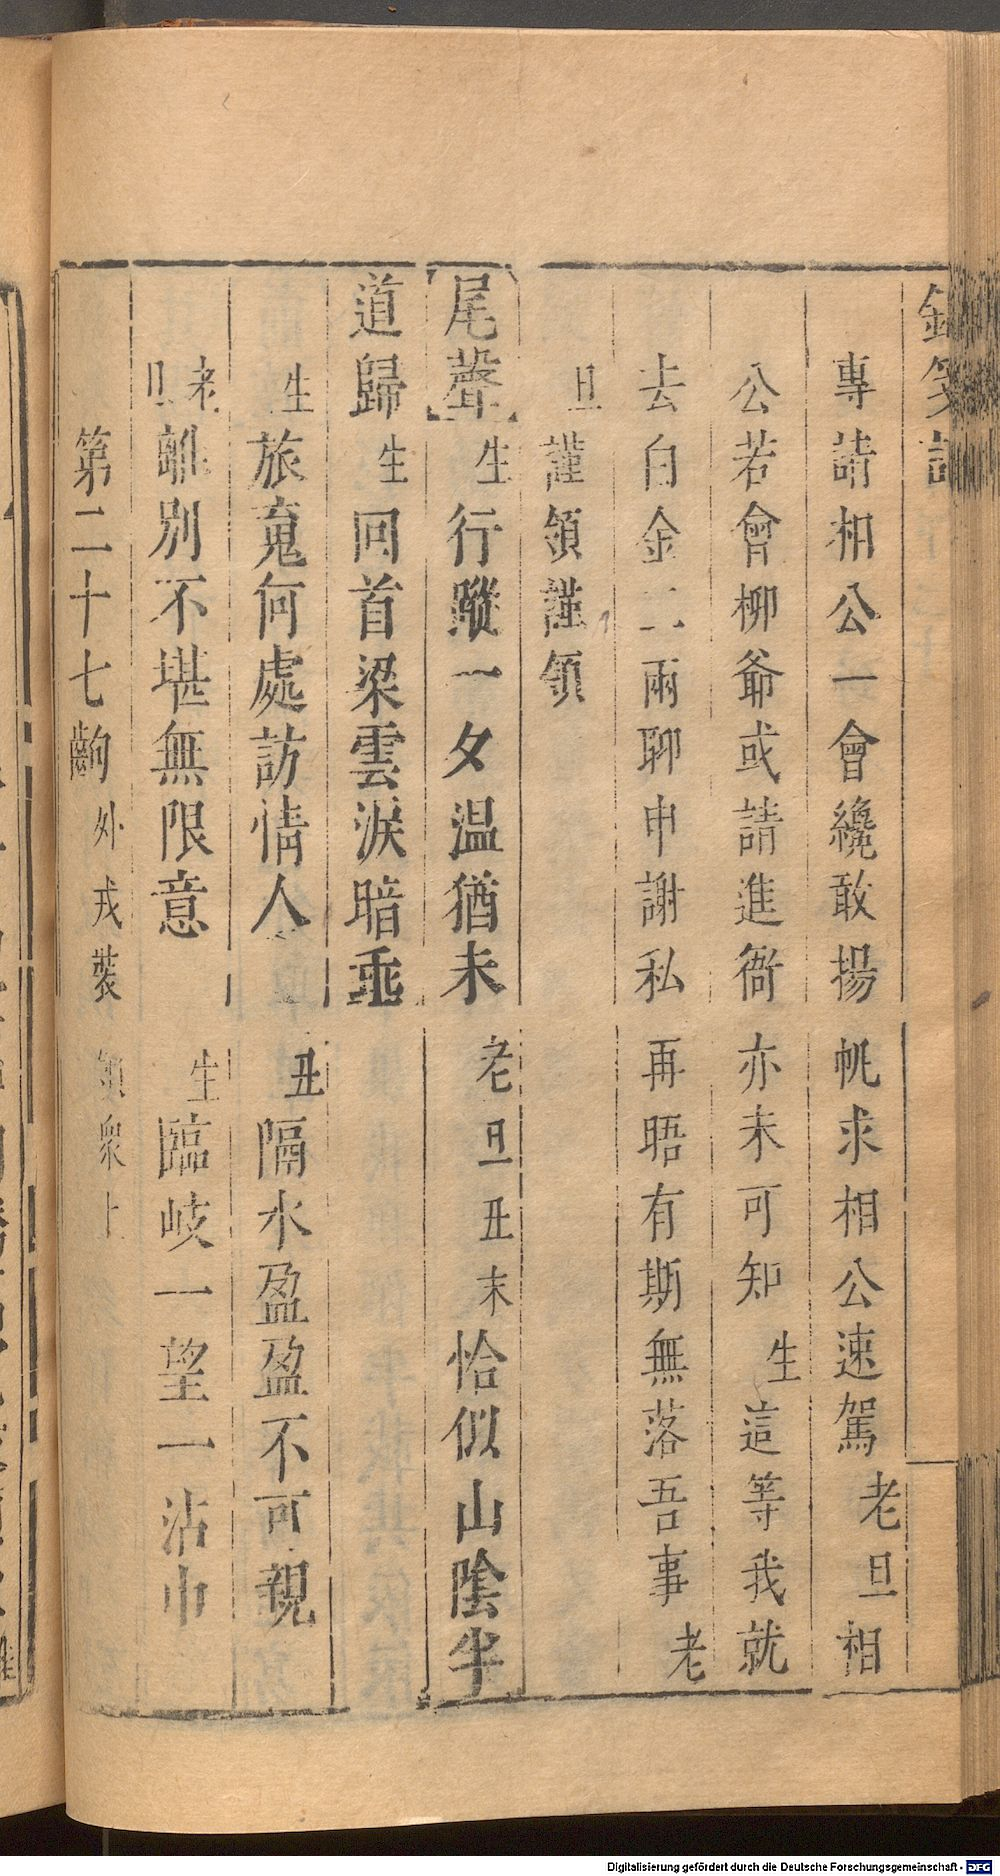 專請相公一會纔敢揚帆求相公速駕老旦相
公若會柳爺或請進衙亦未可知生這等我就
去白金二兩聊申謝私再晤有期無落吾事老
旦謹領謹領
尾聲生行蹤一夕温猶未老旦丑末恰似山陰半
道歸生回首梁雲淚暗垂
生旅䰟何處訪情人丑隔水盈盈不可親
老旦離別不堪無限意生臨岐一望一沾巾
第二十七齣外戎裝領衆上
Digitalisierung gefördert durch die Deutsche Forschungsgemeinschaft - DFG